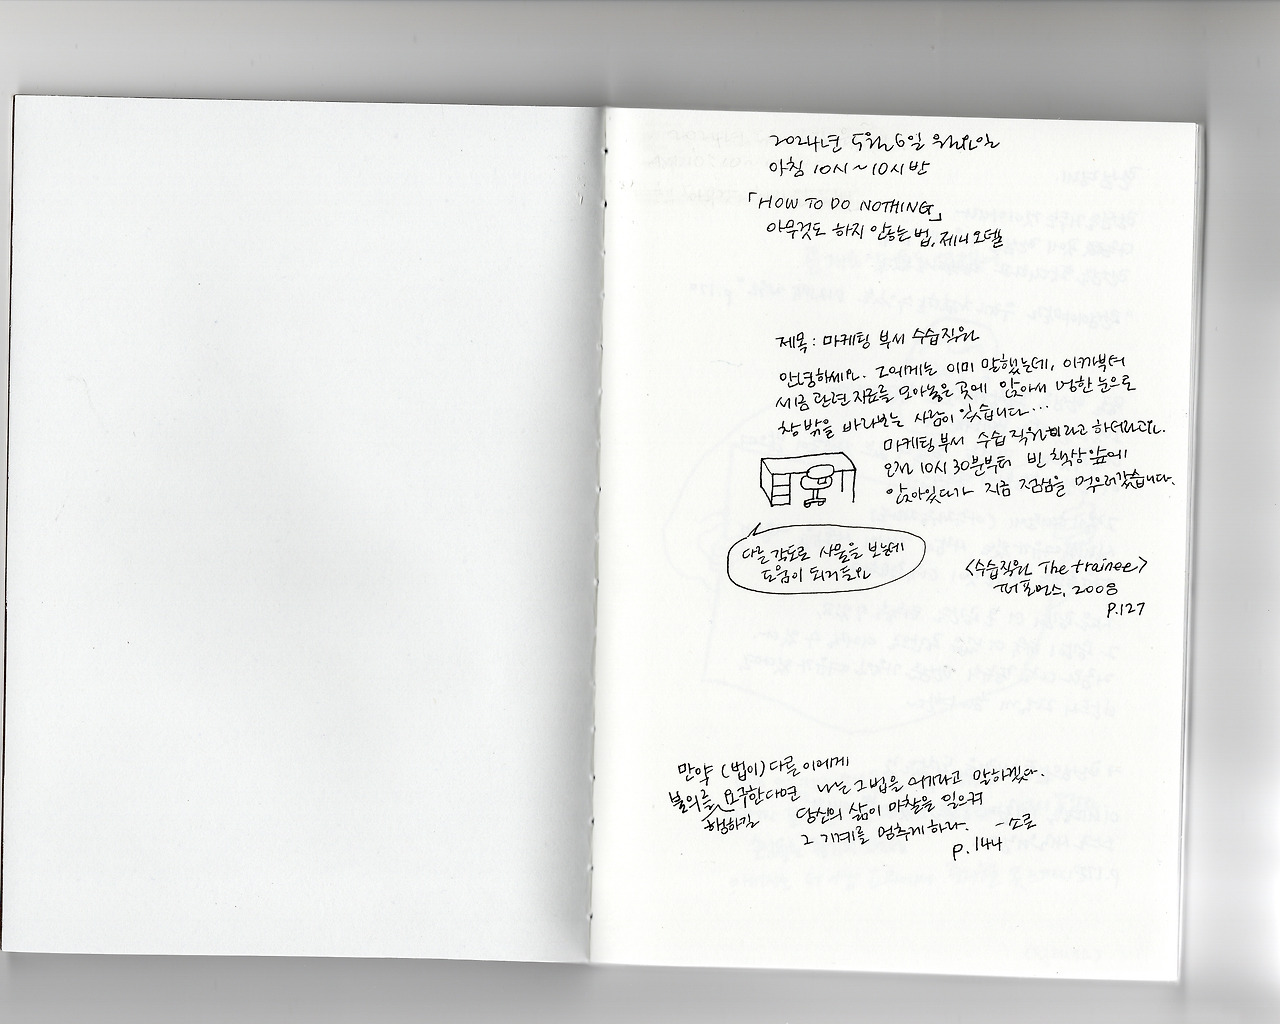 2024년 5월 6일 월요일
아침 10시~10시반
「HOW TO DO NOTHING」
아무것도 하지 않는 법, 제니 오델
제목: 마케팅 부서 수습직원
안녕하세요. 그에게는 이미 말했는데, 아까부터
세금 관련 자료를 모아놓은 곳에 앉아서 멍한 눈으로
창 밖을 바라보는 사람이 있습니다...
마케팅부서 수습 직원이라고 하더라고요.
오전 10시 30분부터 빈 책상 앞에
앉아있다가 지금 점심을 먹으러갔습니다.
다른 각도로 사물을 보는데
도움이 되거든요
<수습직원 The trainee>
퍼포먼스, 2008
P.127
만약 (법이) 다른 이에게
불의를 행하길 요구한다면 나는 그 법을 어기라고 말하겠다.
당신의 삶이 마찰을 일으켜
그 기계를 멈추게 하라. -소로
p.144